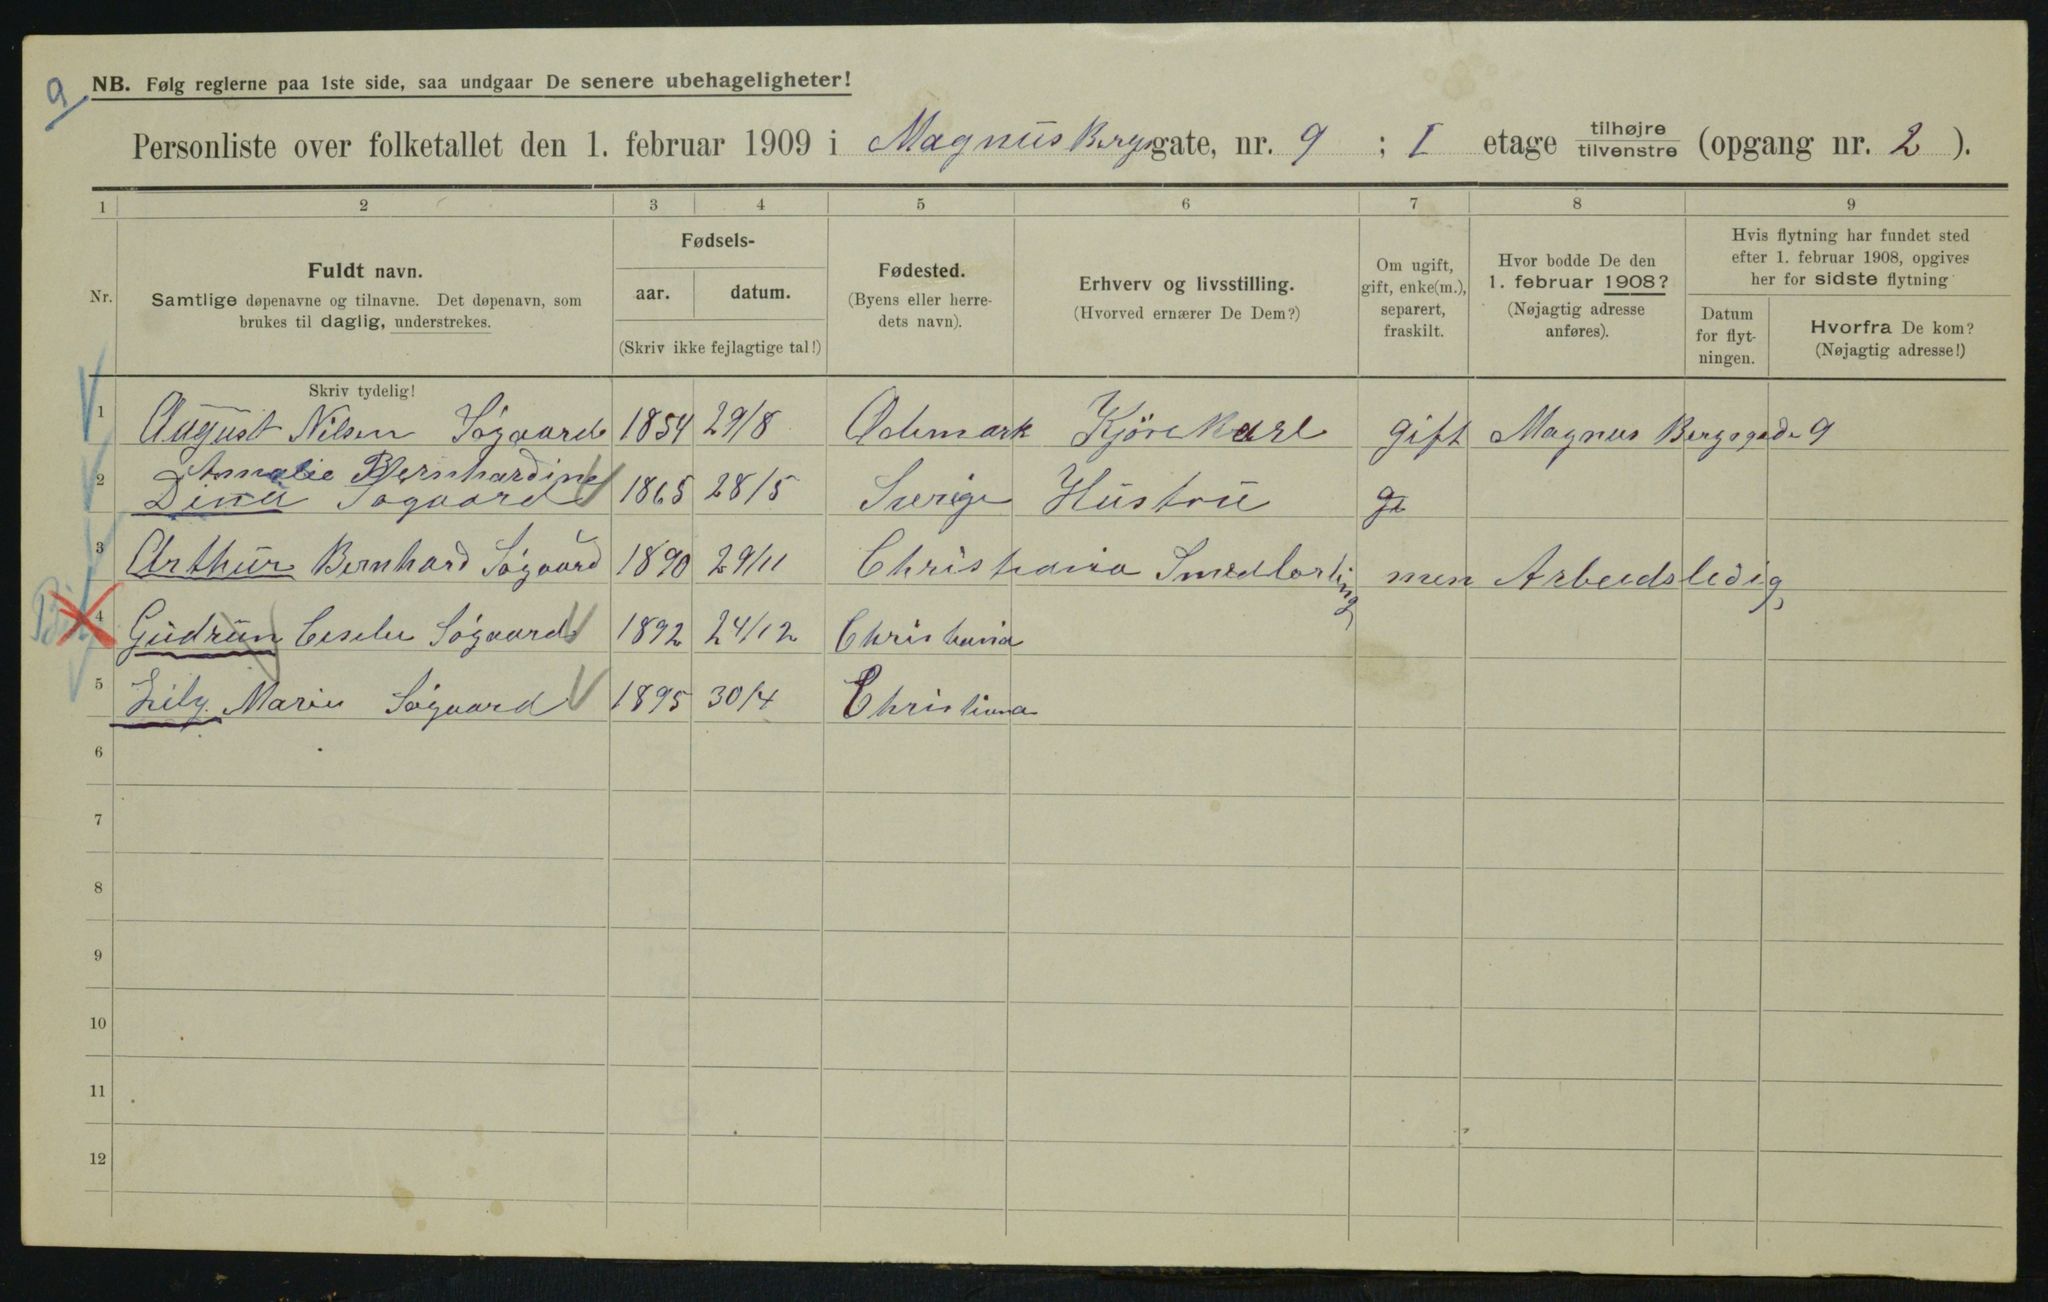 9
NB. Følg reglerne paa 1ste side, saa undgaar De senere ubehageligheter!
Personliste over folketallet den 1. februar 1909 i Magnus Bergsgate, nr. 9 ; I etage tilhøjre tilvenstre (opgang nr. 2 ).
1 2 3 4 5 6 7 8 9
Nr.
Fuldt navn.
Samtlige døpenavne og tilnavne. Det døpenavn, som
brukes til daglig, understrekes.
Fødsels-
aar. datum.
(Skriv ikke fejlagtige tal!)
Fødested.
(Byens eller herre-
dets navn).
Erhverv og livsstilling.
(Hvorved ernærer De Dem?)
Om ugift,
gift, enke(m.),
separert,
fraskilt.
Hvor bodde De den
1. februar 1908?
(Nøjagtig adresse
anføres).
Hvis flytning har fundet sted
efter 1. februar 1908, opgives
her for sidste flytning
Datum
for flyt-
ningen.
Hvorfra De kom?
(Nøjagtig adresse!)
Skriv tydelig!
1 August Nilsen Søgaard 1854 29/8 Ødemark Kjørekarl gift Magnus Bergsgade 9
Amalie Bernhardine
2 Dina Søgaard 1865 28/5 Sverige Hustru g
3 Arthur Bernhard Søgaard 1890 29/11 Christiania Smedlærling men Arbeidsledig
4 Gudrun Søgaard 1892 24/12 Christiania
5 Lily Marie Søgaard 1895 30/4 Christiania
6
7
8
9
10
11
12